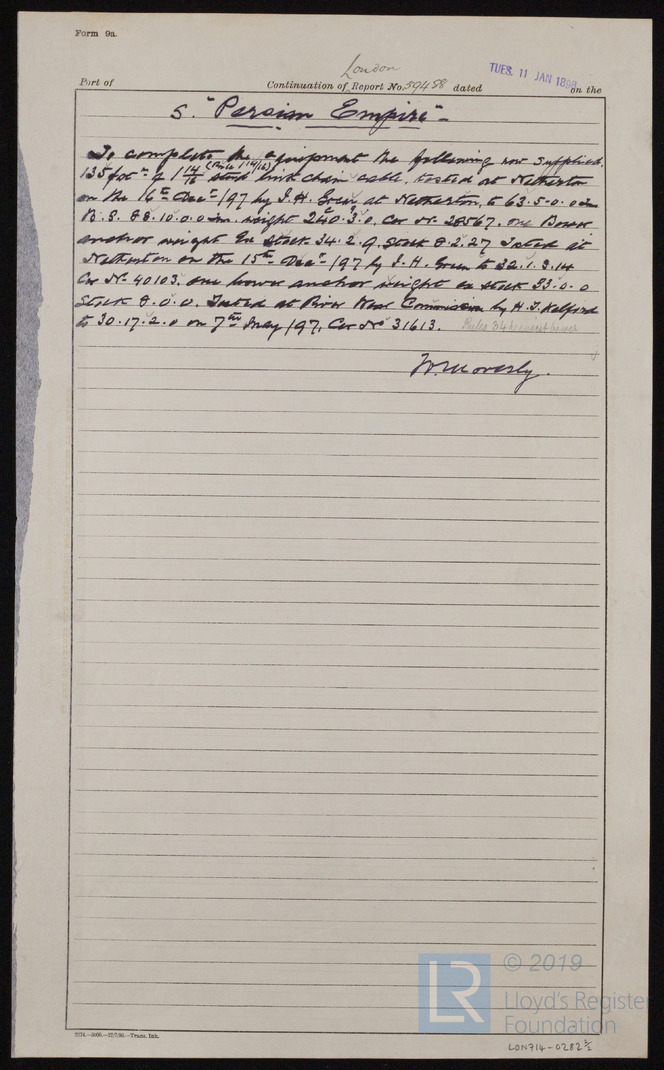 Form 9a.
London
TUES. 11 JAN 1898
Port of Continuation of Report No. 59458 dated on the
S. "Persian Empire"
To complete the equipment the following now supplied.
135 fms of 1 14/16 (Rule 1 14/16) stud link chain cable, tested at Netherton
on the 16th Decr /97 by J. H. Green at Netherton, to 63.5.0.0
B.S. 88.10.0.0 weight 240.3.0. Cer No 28567. One Bower
anchor weight Ex stock 34.2.9. Stock 8.2.27 Tested at
Netherton on the 15th Decr /97 by J. H. Green to 32.1.3.14
Cer No 40103. One bower anchor weight ex stock 33.0.0
Stock 8.0.0. Tested at River Wear Commission by H. J.
to 30.17.2.0 on 7th May /97, Cer No 31613.
W. Moverly.
© 2019
Lloyd's Register
Foundation
LR
LON714-0282